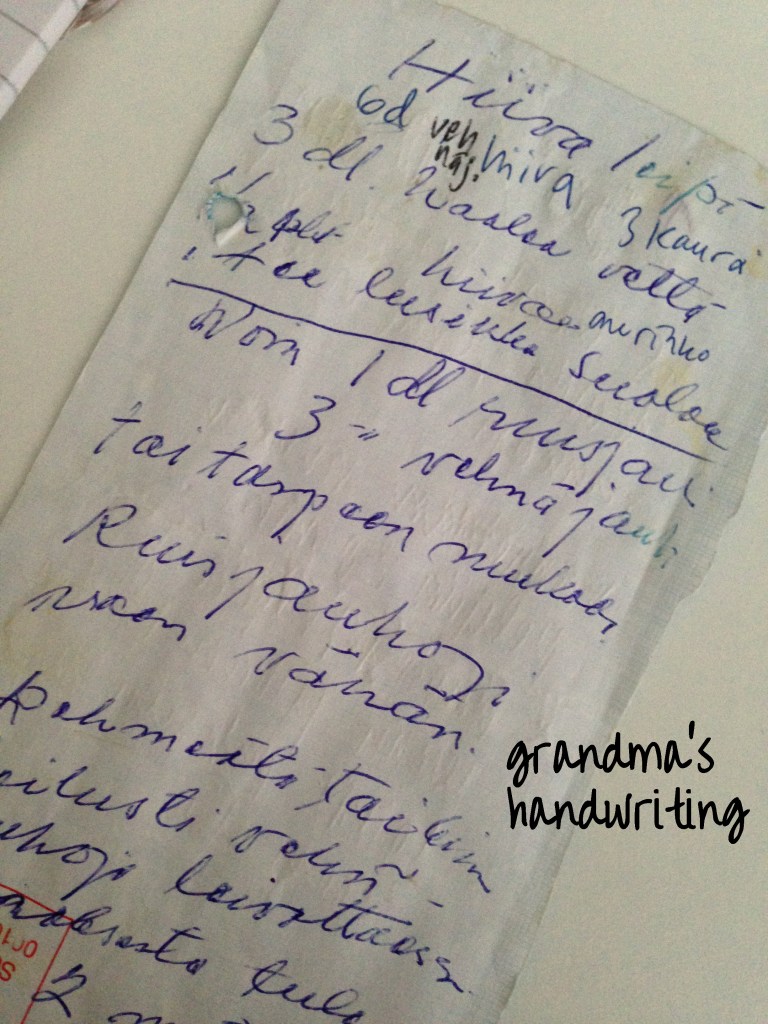 Hiiva leipä
6d veh näj. hiiva 3 kaura
3 dl. haalea vettä
1/2 pkt hiivaa aurinko
1 tee lusikka suolaa
Noin 1 dl ruisjau
3 -"- vehnäjauh
tai tarpeen mukaan
Ruisjauhoja
vaan vähän.
Pehmeätä taikin
vehn-
uhoja leivottaessa
tule
2
grandma's
handwriting